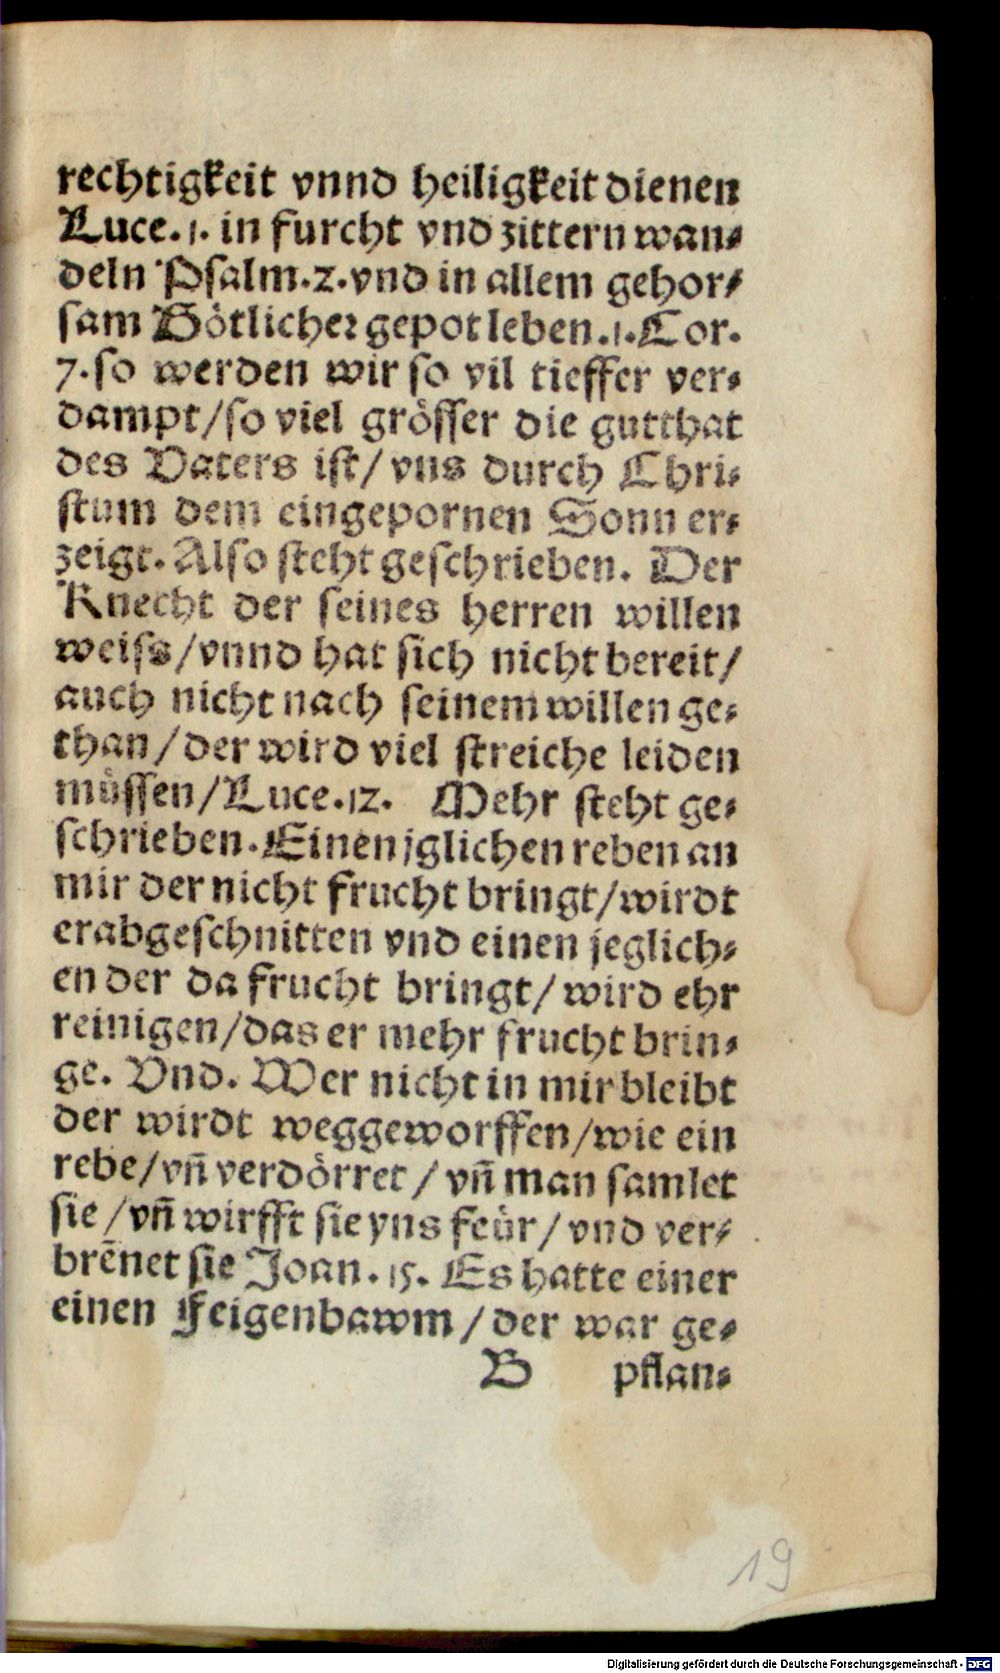 rechtigkeit vnnd heiligkeit dienen
Luce.1. in furcht vnd zittern wan⸗
deln Psalm.2.vnd in allem gehor⸗
sam Götlicher gepot leben.1.Cor.
7.so werden wir so vil tieffer ver⸗
dampt/so viel grösser die gutthat
des Vaters ist/ vns durch Chri⸗
stum dem eingepornen Sonn er⸗
zeigt. Also steht geschrieben. Der
Knecht der seines herren willen
weiss/vnnd hat sich nicht bereit/
auch nicht nach seinem willen ge⸗
than/der wird viel streiche leiden
müssen/Luce.12. Mehr steht ge⸗
schrieben.Einen jglichen reben an
mir der nicht frucht bringt/wirdt
erabgeschnitten vnd einen jeglich⸗
en der da frucht bringt/ wird ehr
reinigen/das er mehr frucht brin⸗
ge. Vnd. Wer nicht in mir bleibt
der wirdt weggeworffen/wie ein
rebe/vñ verdörret/ vñ man samlet
sie/vñ wirfft sie yns feür/ vnd ver⸗
brēnet sie Joan.15. Es hatte einer
einen Feigenbawm/der war ge⸗
B pflan⸗
19
Digitalisierung gefördert durch die Deutsche Forschungsgemeinschaft - DFG